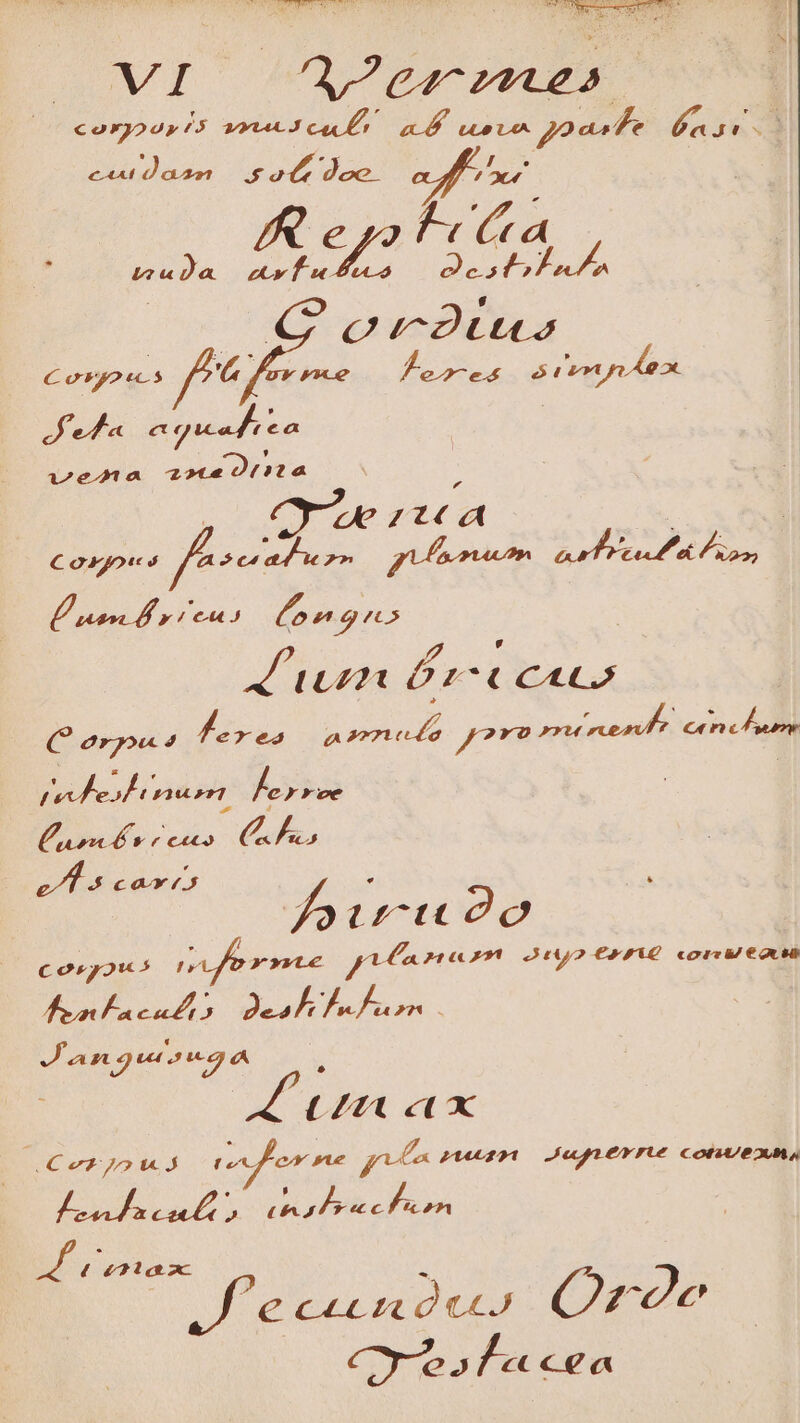 VI Vermes
corporis musculi ab una parte basi
cuidam solidae affixi
Reptilia
nuda artubus destituta
Gordius
Corpus filiforme teres simplex
Seta aquatica
vena medina
Taenia
corpus fasciatum planum articulatum
Lumbricus longus
Lumbricus
Corpus teres annulo prominenti cinctum
intestinum terrae
Lumbricus latus
Ascaris
hirudo
corpus inferne planum superne convexum
tentaculis destitutum
Sanguisuga
Limax
Corpus inferne planum superne convexum
tentaculis instructum
Limax
Secundus Ordo
Testacea